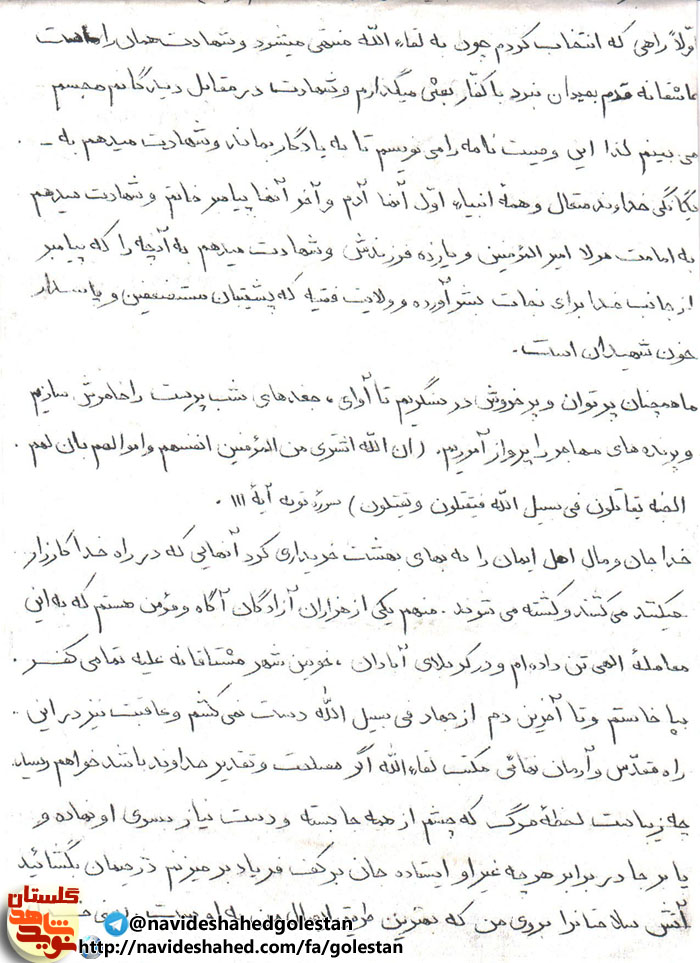 اوّلاً راهی که انتخاب کردم چون به لقاء الله منتهی میشود و شهادت همان راه است
عاشقانه قدم بمیدان نبرد با کفّار بعثی میگذارم و شهادت در مقابل دیدگانم مجسم
می بینم لذا این وصیت نامه را می نویسم تا به یادگار بماند و شهادت میدهم به -
یگانگی خداوند متعال و همهٔ انبیاء اوّل آنها آدم و آخر آنها پیامبر خاتم و شهادت میدهم
به امامت مولا امیر المؤمنین و یازده فرزندش و شهادت میدهم به آنچه را که پیامبر
از جانب خدا برای نجات بشر آورده و ولایت فقیه که پشتیبان مستضعفین و پاسدار
خون شهیدان است.
ما همچنان پر توان و پر خروش در سنگریم تا آوای، جغدهای شب پرست را خاموش سازیم
و پرنده های مهاجر را پرواز آموزیم. (ان الله اشتری من المؤمنین انفسهم و اموالهم بان لهم
الجنه یقاتلون فی سبیل الله فیقتلون و یقتلون) سورهٔ توبه آیهٔ ۱۱۱.
خدا جان و مال اهل ایمان را به بهای بهشت خریداری کرد آنهایی که در راه خدا کارزار
میکنند می کشند و کشته می شوند. منهم یکی از هزاران آزادگان آگاه و مؤمن هستم که به این
معاملهٔ الهی تن داده ام و در کربلای آبادان، خونین شهر مشتاقانه علیه تمامی کفر.
بپا خاستم و تا آخرین دم از جهاد فی سبیل الله دست نمی کشم و عاقبت نیز در این.
راه مقدّس و آرمان نهائی مکتب لقاء الله اگر مصلحت و تقدیر خداوند باشد خواهم رسید.
چه زیباست لحظهٔ مرگ که چشم از همه جا بسته و دست نیاز بسوی او نهاده و
پا بر جا در برابر هر چه غیر او ایستاده جان بر کف فریاد بر میزنم دژخیمان بگشائید
آتش سلاحتانرا بروی من که بهترین طریق به او
گلستان
نوید شاهد
@navideshahedgolestan
http://navideshahed.com/fa/golestan